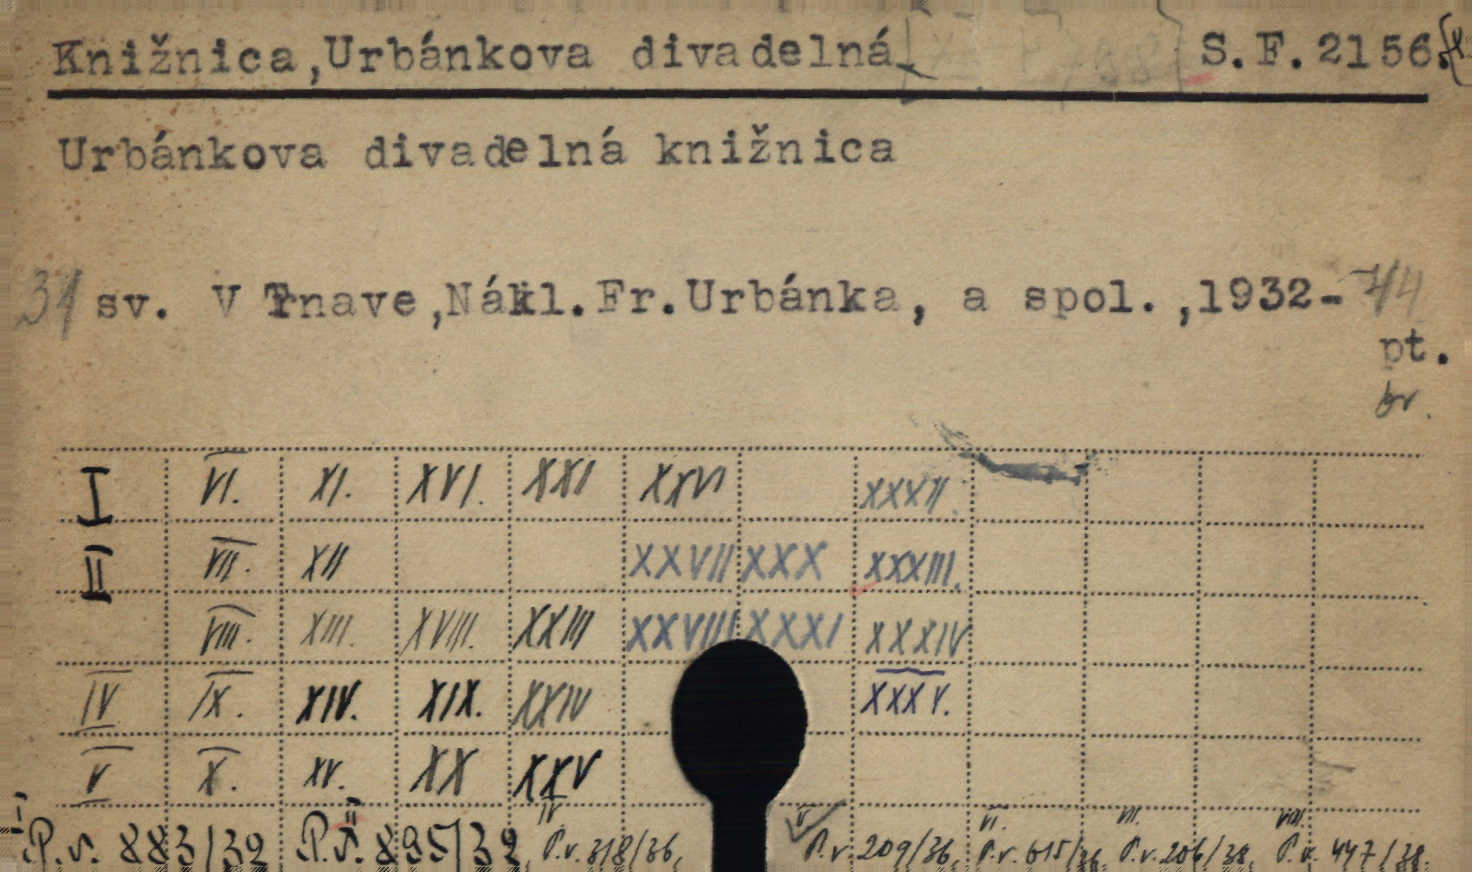 Knižnica,Urbánkova divadelná. S.F.2156.
Urbánkova divadelná knižnica
31 sv. V Trnave,Nákl.Fr.Urbánka, a spol.,1932-44
pt.
br.
I VI. XI. XVI. XXI XXVI XXXII.
II VII. XII XXVII XXX XXXIII.
VIII. XIII. XVIII. XXIII XXVIII XXXI XXXIV
IV IX. XIV. XIX. XXIV XXXV.
V X. XV. XX XXV
I II IV V VI. VII. VIII.
P.v. 883/32 P.v. 895/32, P.v. 318/36, P.v 209/36, P.v. 615/36 P.v. 206/38, P.v. 447/38.